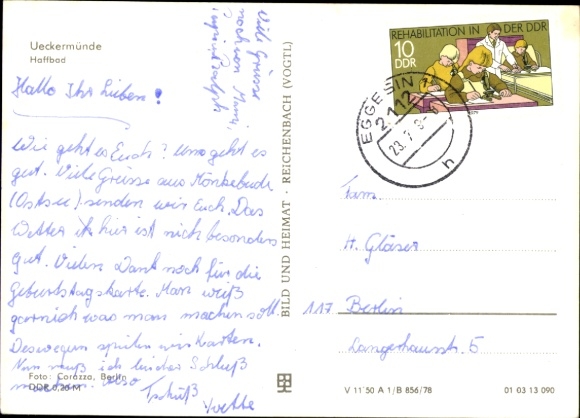 Ueckermünde
Haffbad
Hallo Ihr Lieben!
Wie geht es Euch? Uns geht es
gut. Viele Grüsse aus Mönkebude
(Ostsee) senden wir Euch. Das
Wetter hier ist nich besonders
gut. Vielen Dank noch für die
Geburtstagskarte. Man weiß
garnich was man machen soll.
Deswegen spielen wir Karten.
Nun muß ich leider Schluß
machen. Also
Tschüß
Yvette
Foto: Corazza, Berlin
DDR 0,20 M
Viele Grüsse
BILD UND HEIMAT · REICHENBACH (VOGTL)
REHABILITATION IN DER DDR
10
DDR
EGGESIN
2112
23.7.
h
Fam.
H. Gläser
117 Berlin
5
V 11 50 A 1/B 856/78
01 03 13 090